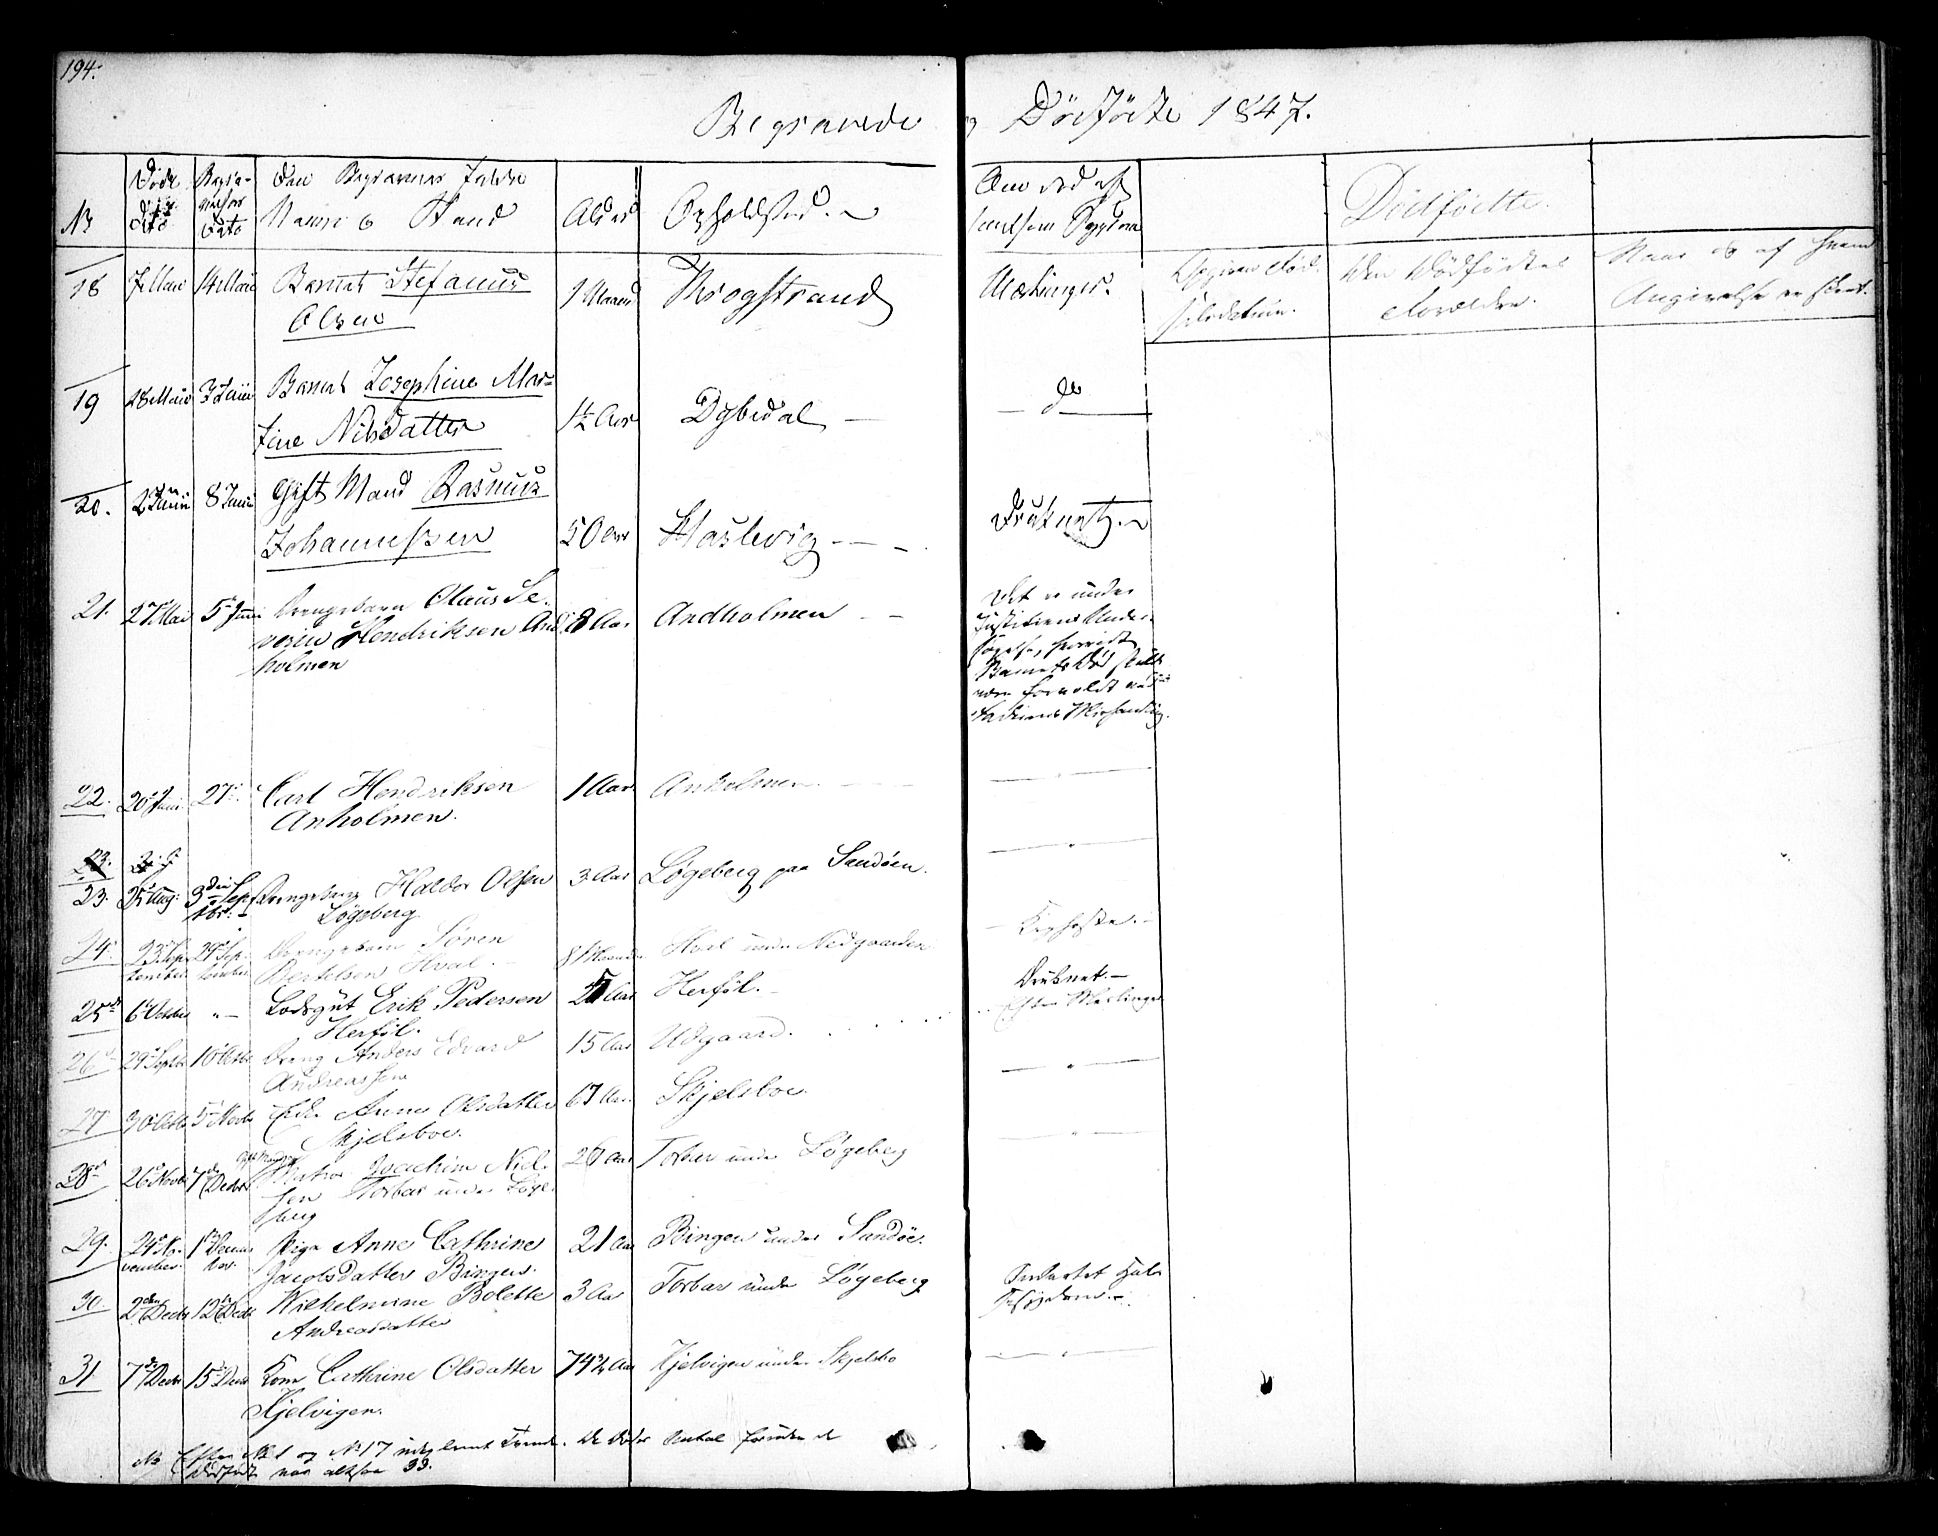 194.
Begravede og Dödfödte 1847.
No Döds Dato Begravelses Dato Den Begravnes fulde Navn og Stand Alder Opholdsted. Om död af smitsom Sygdom
Dödfödte.
18 7 Mai 14 Mai Barnet Stefanus Olsen 1 Maaned Krogstrand Mæslinger.
Opgiven Föd-selsdatum. Den Dödfödtes Forældre. Naar og af hvem Angivelse er skeet.
19 28 Mai 3 Juni Barnet Josephine Mar-
tine Nilsdatter 1½ Aar Dybedal do
20. 2 Juni 8 Juni Gift Mand Rasmus
Johannessen 50 Aar Haslevig Druknet.
21. 27 Mai 5 Juni Drengebarn Olaus Se-
verin Hendriksen And
holmen 8 Aar Andholmen
Det er under
Justitiens Under-
sögelse, hvorvidt
Barnets Död skulde
være forvoldt ved
Faderens Mishandling.
22. 20 Juni 27 Carl Hendriksen
Anholmen. 1 Aar Anholmen
23. 25 Aug: 3 Sep-
tbr: Drengebarn Haldor Olsen
Løgeberg 3 Aar Løgeberg paa Sandöen.
24 23 Sep-
tember 29 Sep-
tember Drengebarn Sören
Bertelsen Hval. 8 Maaneder Hval under Nedgaarden Kighoste.
25 6 October " Lodsgut Erik Pedersen
Herföl. 25 Aar Herföl. Druknet.
26 29 Septbr 10 Octbr Dreng Anders Edvard
Andreassen 15 Aar Udgaard. Mæslinger
27 30 Octbr 5 Novbr Enke Anne Olsdatter
Skjelsboe. 67 Aar Skjelsboe. "
28 26 Novbr 7 Decbr Gift Mand Matros Joachim Niel-
sen Torbar under Løge-
berg 26 Aar Torbar under Løgeberg "
29. 24 No-
vember. 1 Decem-
ber. Pige Anne Cathrine
Jacobsdatter Bingen. 21 Aar Bingen under Sandöe.
30 2 Decbr 12 Decbr Wilhelmine Bolette
Andreasdatter 3 Aar Torbar under Løgeberg
31 7 Decbr 15 Decbr Kone Cathrine Olsdatter
Kjelvigen. 74½ Aar Kjelvigen under Skjelsbo "
NB Efter No 1 og No 17
Dödfödte var altsaa 33.